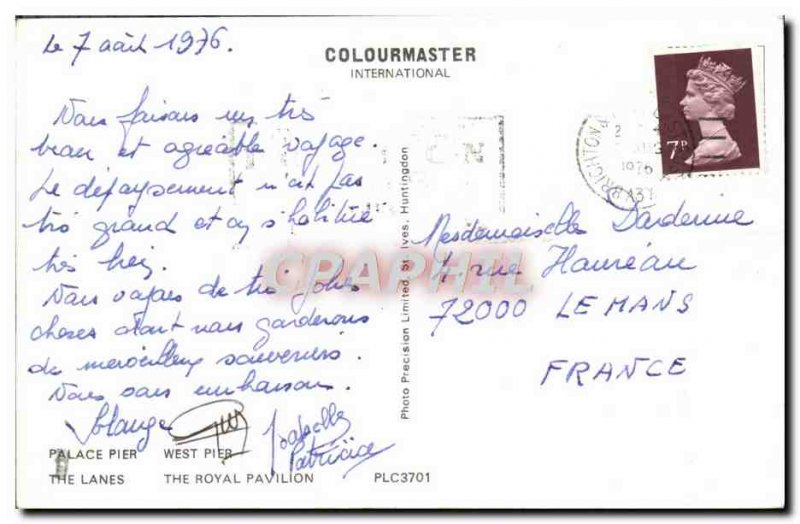 Le 7 août 1976.
COLOURMASTER
INTERNATIONAL
7P
BRIGHTON
1976
Nous faisons un très
beau et agréable voyage.
Le dépaysement n'est pas
très grand et on s'habitue
très bien.
Nous voyons de très jolies
choses dont nous garderons
de merveilleux souvenirs.
Nous vous embrassons.
Solange
Isabelle
Patricia
Mesdemoiselles Dardenne
4 rue Hauréau
72000 LE MANS
FRANCE
Photo Precision Limited, St. Ives, Huntingdon
CPAPHIL
PALACE PIER WEST PIER
THE LANES THE ROYAL PAVILION PLC3701